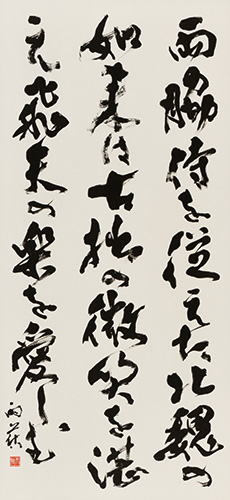 両の脇侍を従えた北魏の
如来は古拙の微笑を湛
え飛天の楽を愛しむ